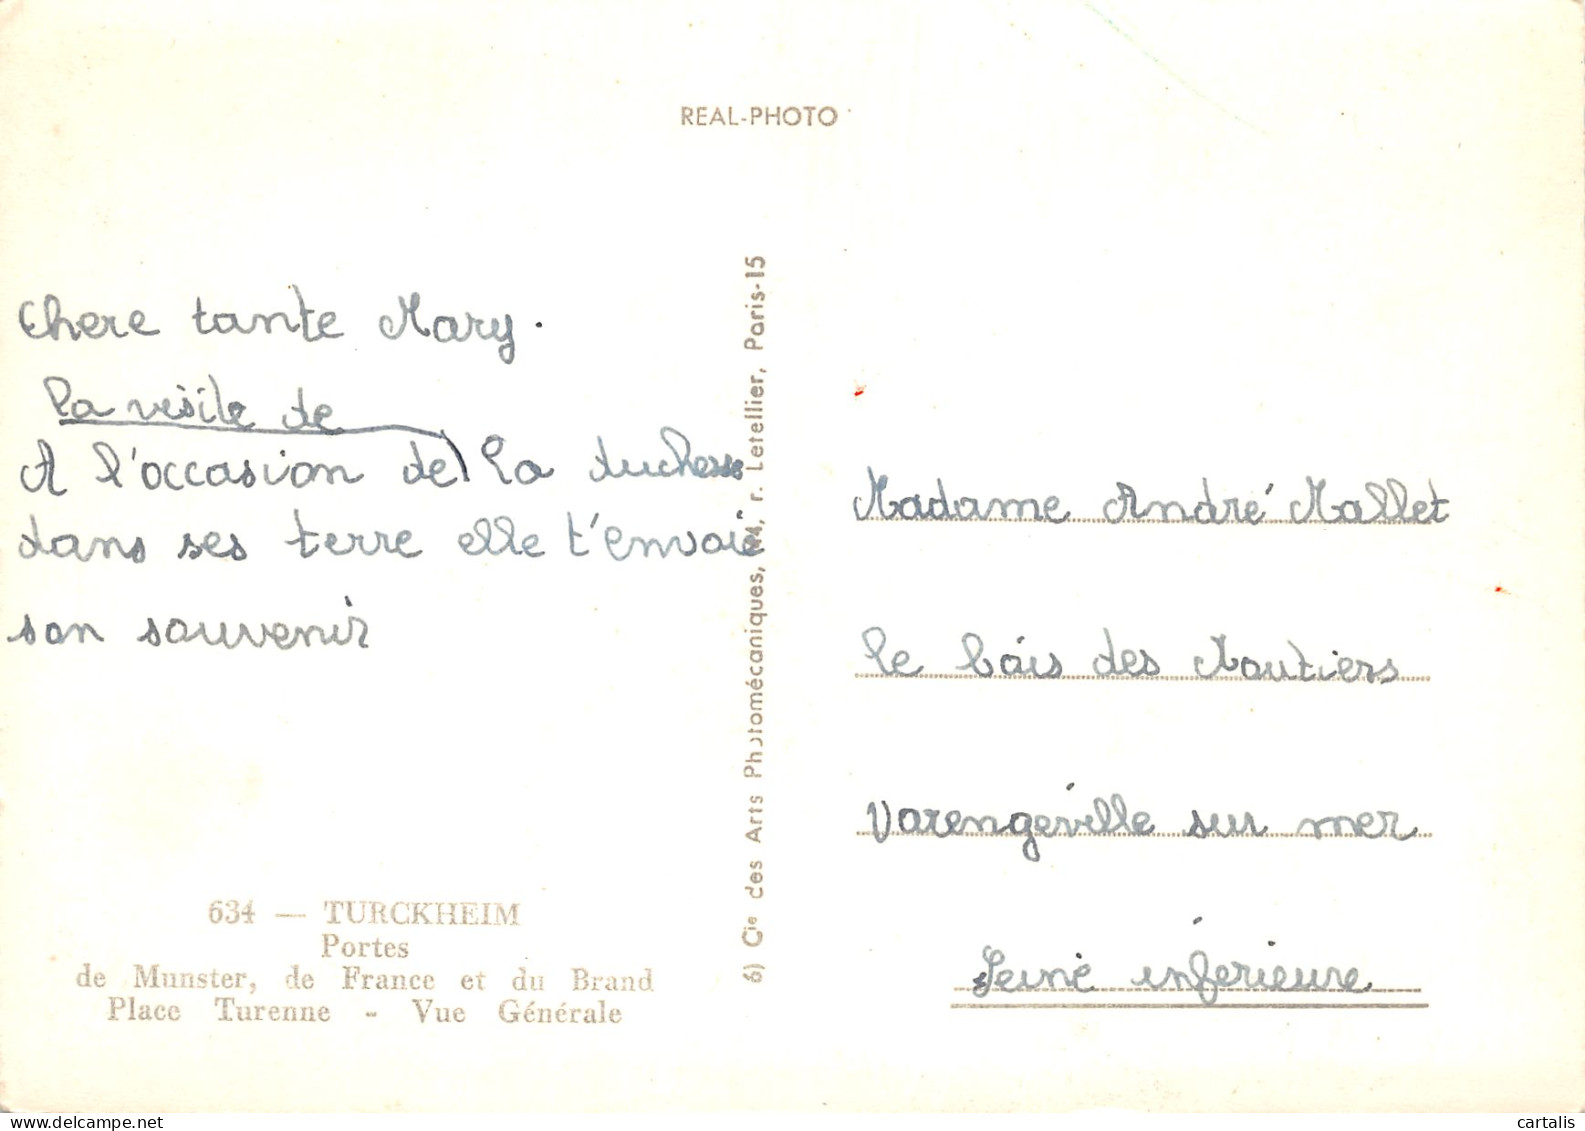 REAL-PHOTO
Chere tante Mary.
la visite de
A l'occasion de la duchesse
dans ses terre elle t'envoie
son souvenir
634 — TURCKHEIM
Portes
de Munster, de France et du Brand
Place Turenne - Vue Générale
6) Cie des Arts Photomécaniques, 44, r. Letellier, Paris-15
Madame André Mallet
le bois des Moutiers
Varengeville sur mer
Seine inférieure
delcampe.net
cartalis